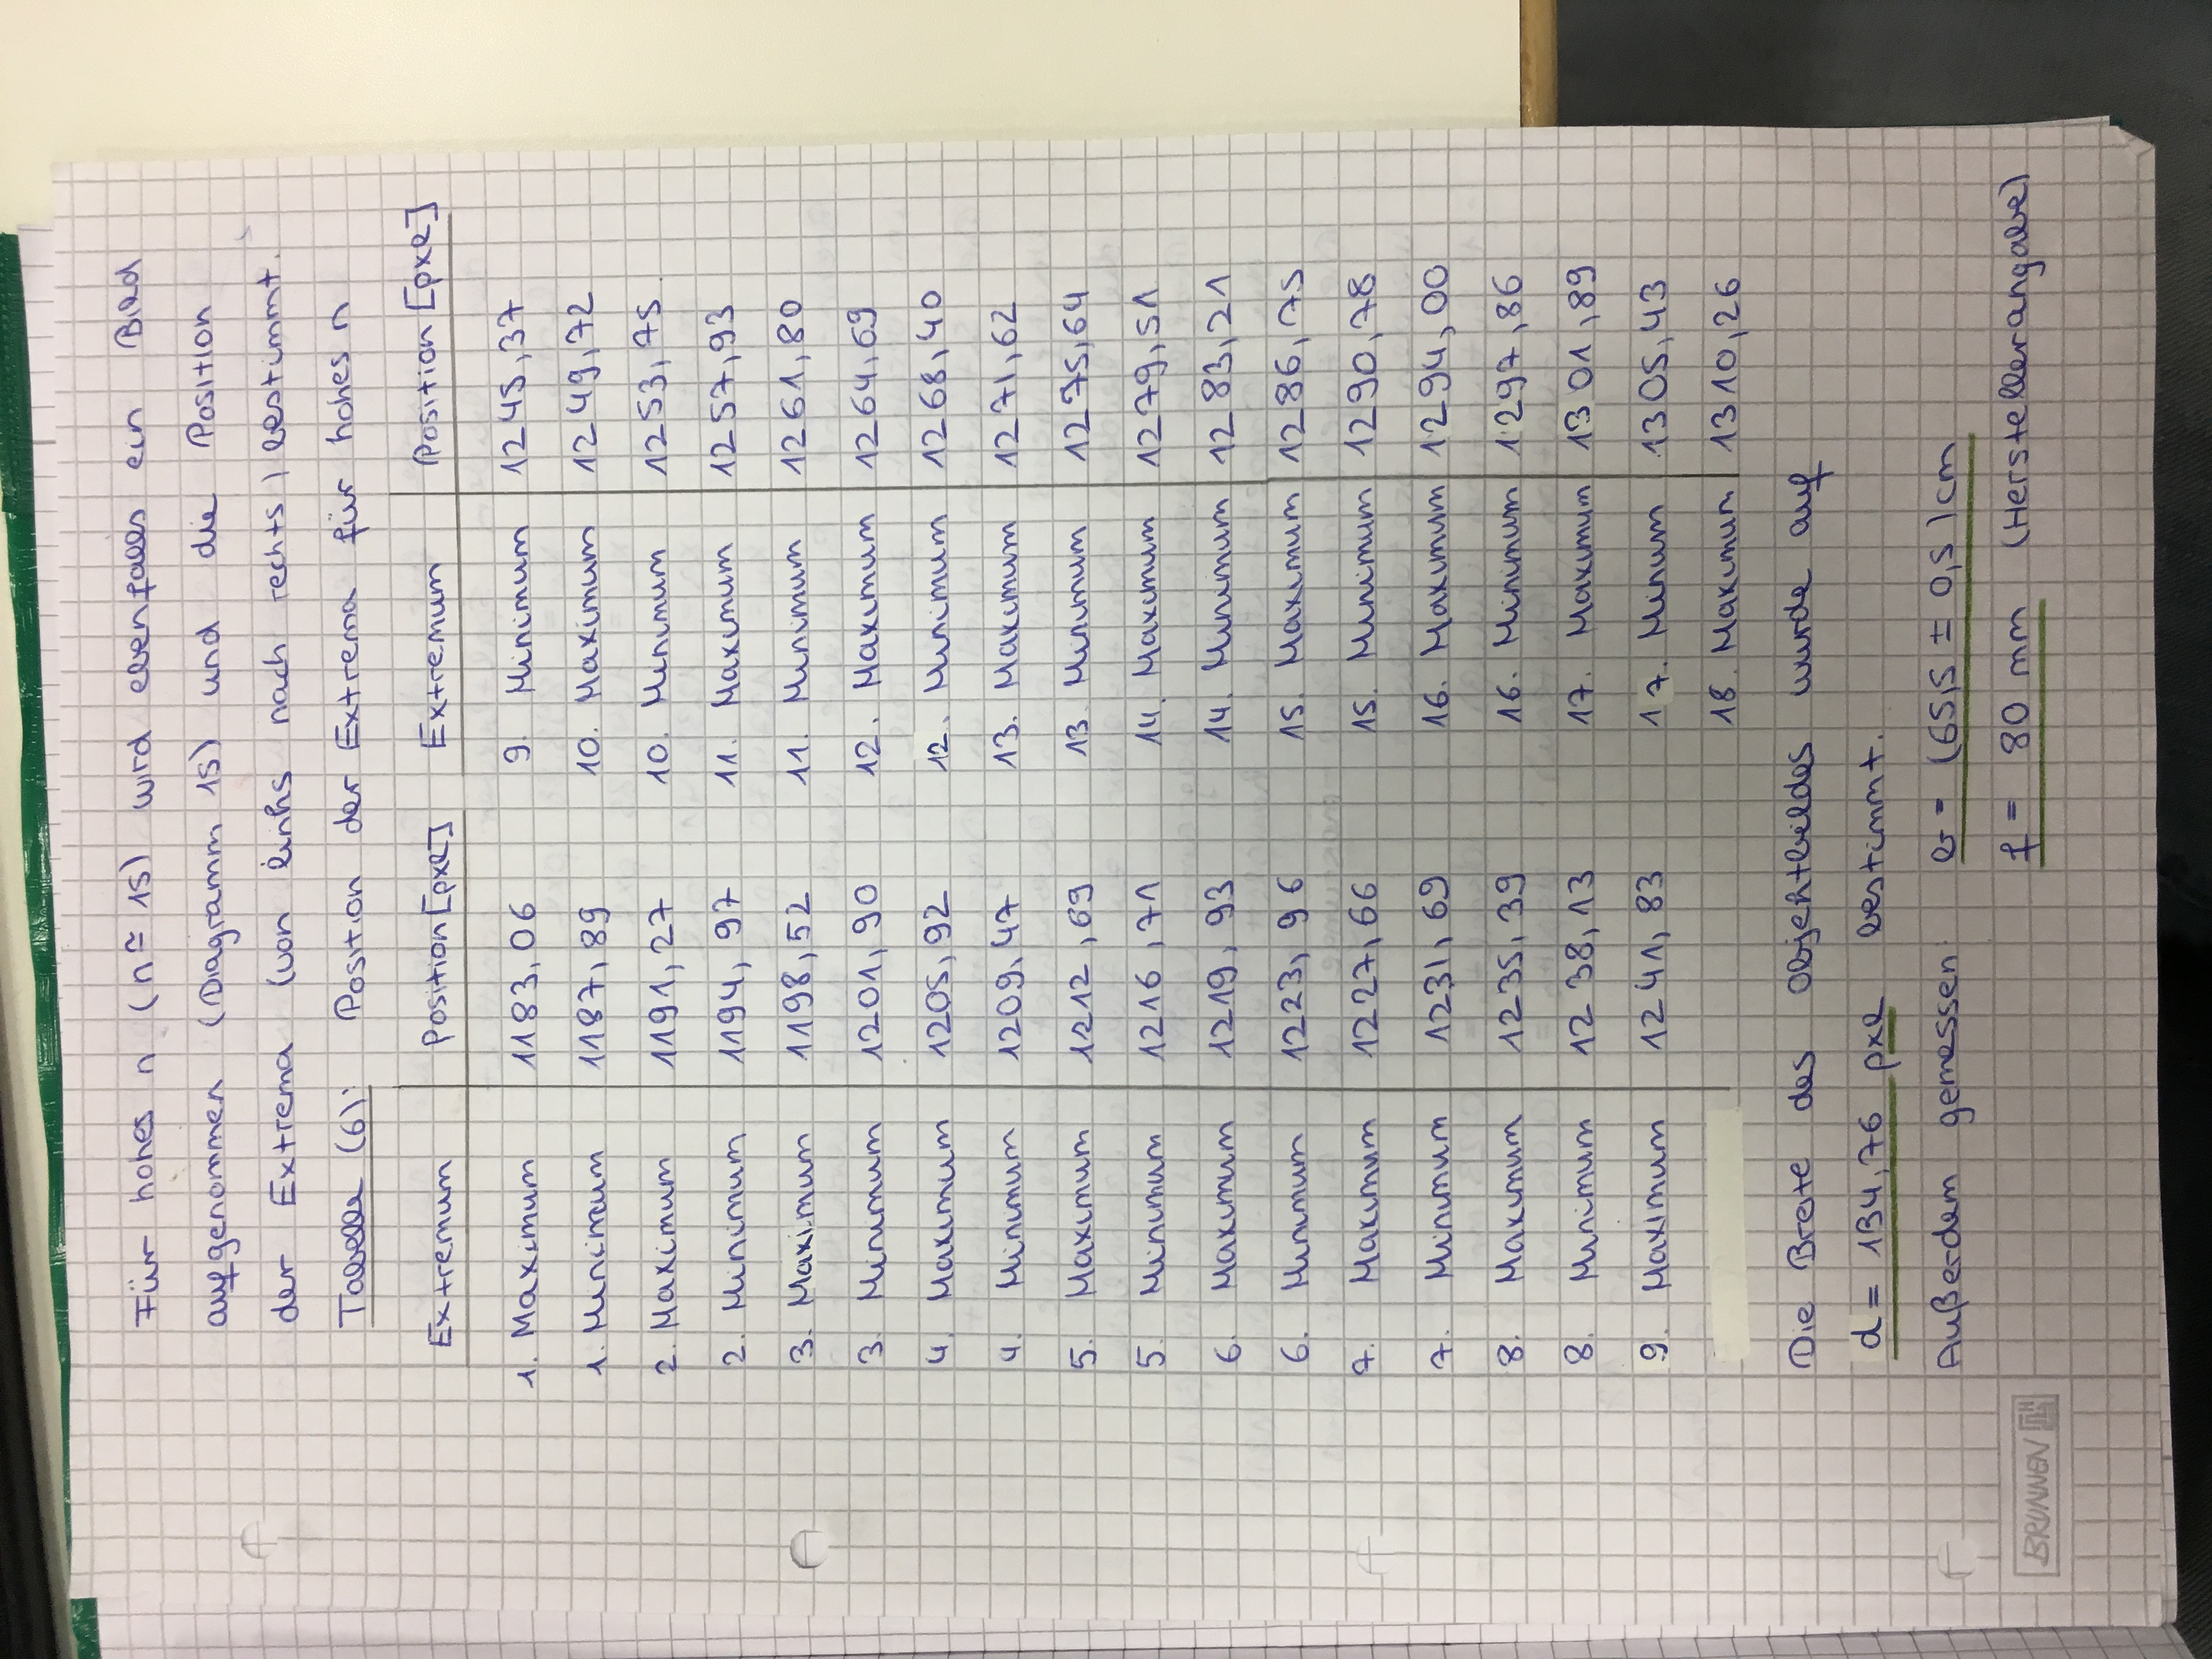 Für hohes n (n ≈ 15) wird ebenfalls ein Bild
aufgenommen (Diagramm 15) und die Position
der Extrema (von links nach rechts) bestimmt.
Tabelle (6): Position der Extrema für hohes n
Extremum Position [pxl] Extremum Position [pxl]
1. Maximum 1183,06 9. Minimum 1245,37
1. Minimum 1187,89 10. Maximum 1249,72
2. Maximum 1191,27 10. Minimum 1253,75
2. Minimum 1194,97 11. Maximum 1257,93
3. Maximum 1198,52 11. Minimum 1261,80
3. Minimum 1201,90 12. Maximum 1264,69
4. Maximum 1205,92 12. Minimum 1268,40
4. Minimum 1209,47 13. Maximum 1271,62
5. Maximum 1212,69 13. Minimum 1275,64
5. Minimum 1216,71 14. Maximum 1279,51
6. Maximum 1219,93 14. Minimum 1283,21
6. Minimum 1223,96 15. Maximum 1286,75
7. Maximum 1227,66 15. Minimum 1290,78
7. Minimum 1231,69 16. Maximum 1294,00
8. Maximum 1235,39 16. Minimum 1297,86
8. Minimum 1238,13 17. Maximum 1301,89
9. Maximum 1241,83 17. Minum 1305,43
18. Maximum 1310,26
Die Breite des Objektbildes wurde auf
d = 134,76 pxl bestimmt.
Außerdem gemessen: = (65,5 ± 0,5) cm
f = 80 mm (Herstellerangabe)
BRUNNEN